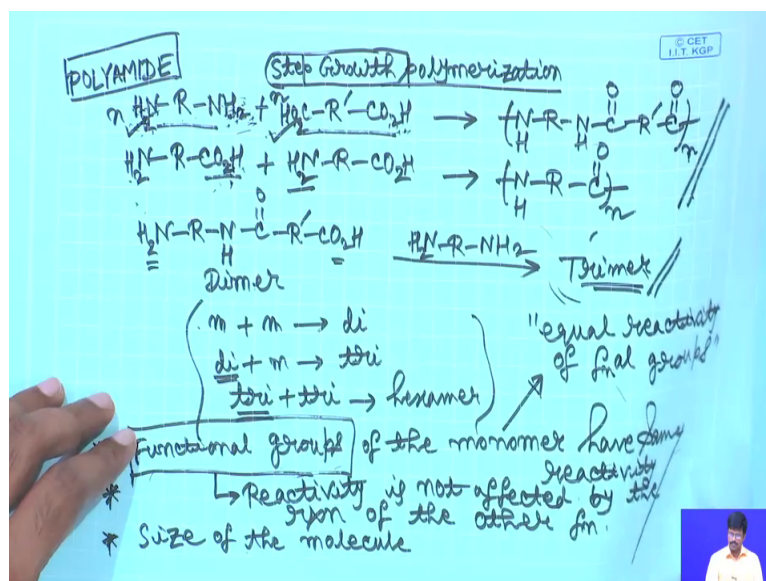 © CET
I.I.T. KGP
POLYAMIDE
Step Growth polymerization
n H₂N-R-NH₂ + n HO₂C-R′-CO₂H → (N-R-N-C-R′-C)n
H H O O
H₂N-R-CO₂H + H₂N-R-CO₂H → (N-R-C)n
H O
H₂N-R-N-C-R′-CO₂H H₂N-R-NH₂ → Trimer
H O
Dimer
m + m → di
di + m → tri
tri + tri → hexamer
"equal reactivity
of fnal groups"
Functional groups of the monomer have same
reactivity
* ↳ Reactivity is not affected by the
rxn of the other fn.
* Size of the molecule